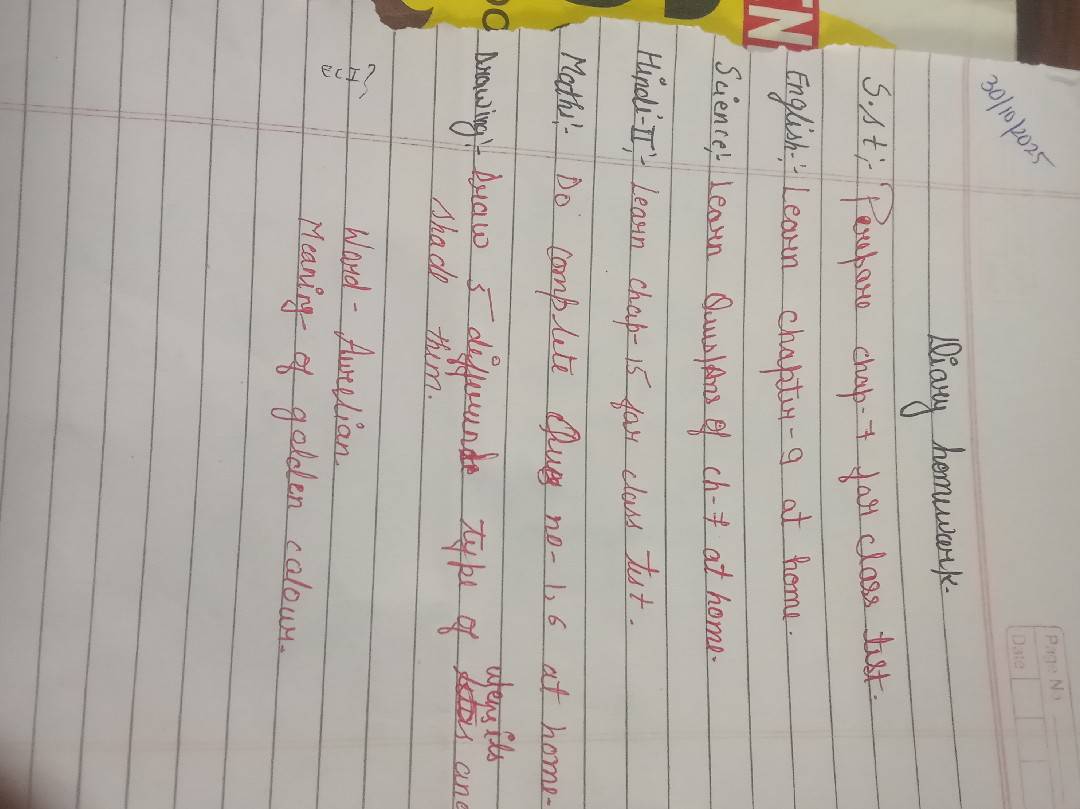 Page No
Date
30/10/2025
Diary homework.
S.st:- Perepare chap-7 for class test.
English:- Learn chapter-9 at home.
Science:- Learn Ques/Ans of ch-7 at home.
Hindi-II:- Learn chap-15 for class test.
Maths:- Do complete Ques no-1,6 at home-
Drawing:- Draw 5 different type of utensils and
shade them.
Word- Aurelian.
Meaning- of golden colour.